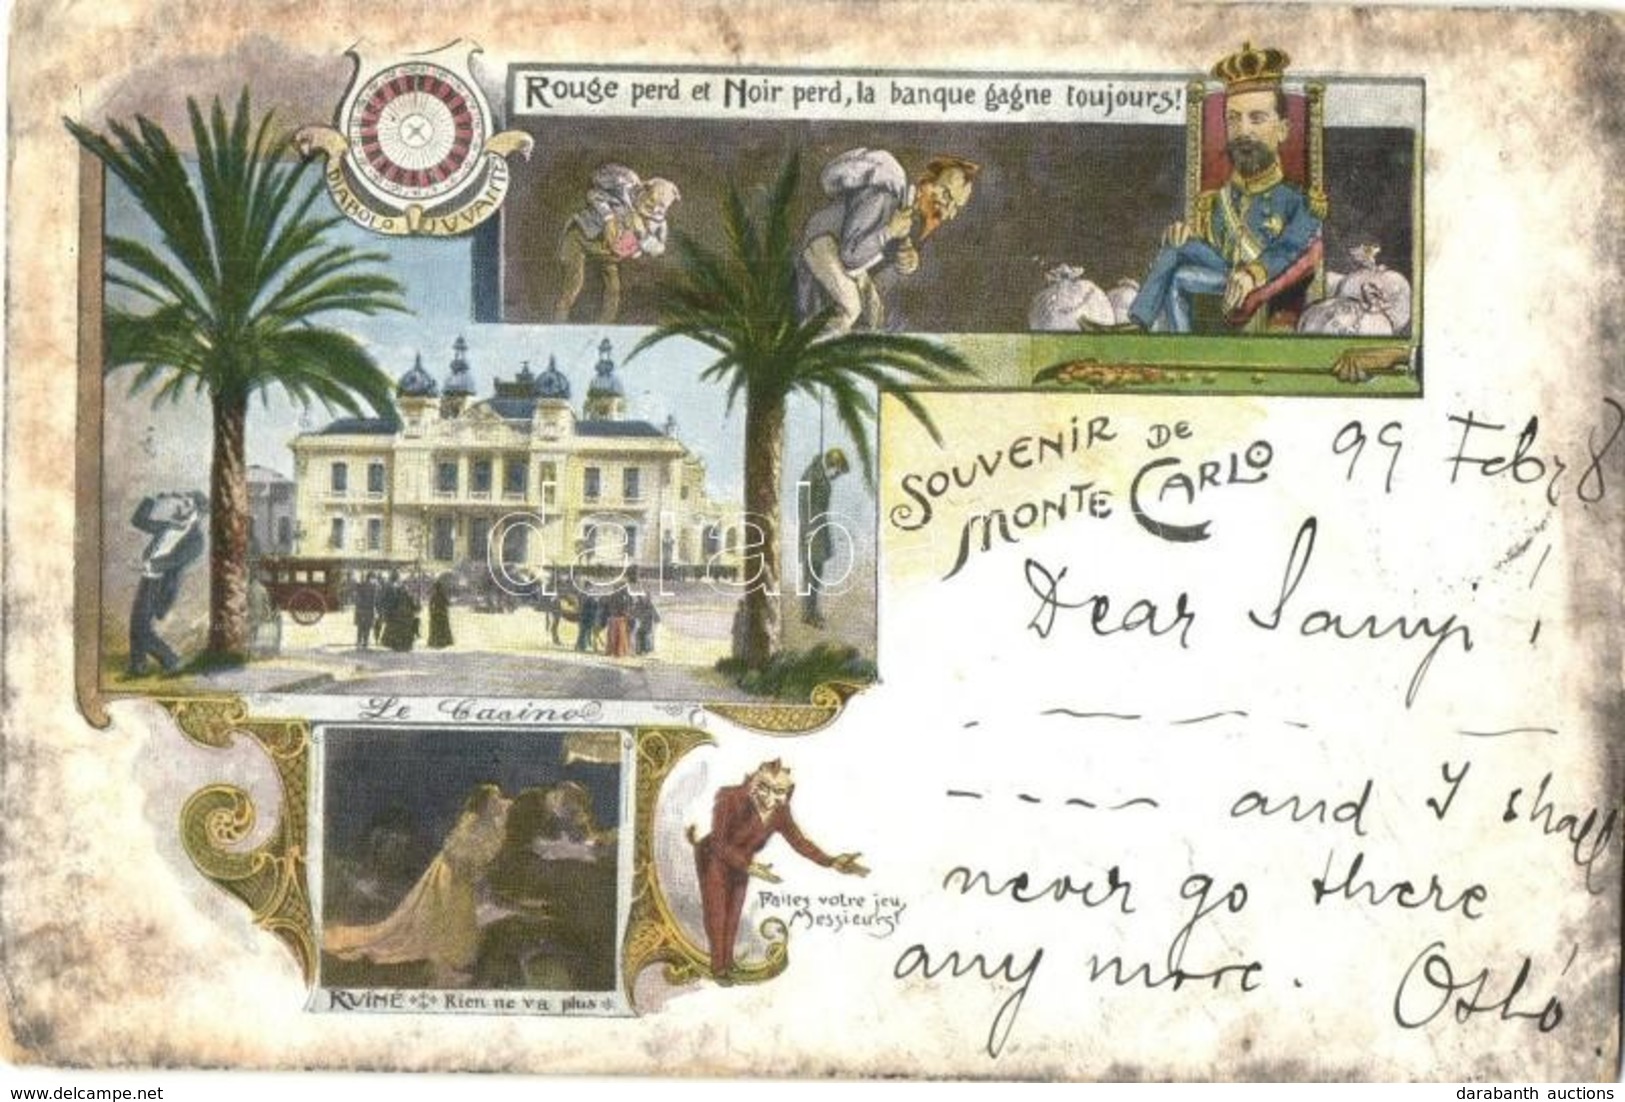 Rouge perd et Noir perd, la banque gagne toujours!
DIABOLO JUVANTE
Souvenir de
Monte Carlo
99 Febr 8
Dear Samyi!
and I shall
never go there
any more.
Le Casino
Faites votre jeu,
Messieurs!
RVINE Rien ne va plus
darab
www.delcampe.net
darabanth auctions